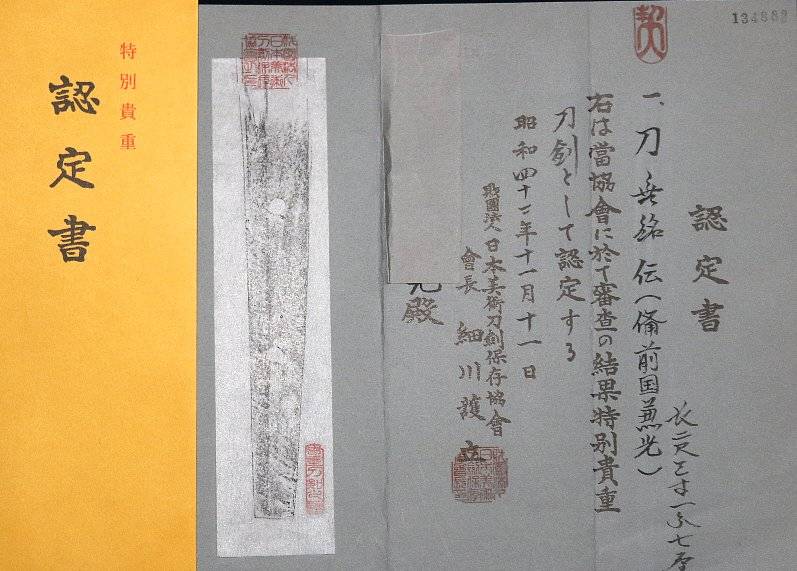 特別貴重
認定書
認定書
一、刀 無銘 伝(備前国兼光)
長二尺三寸一分七厘
右は當協會に於て審査の結果特別貴重
刀劍として認定する
昭和四十二年十一月十一日
財團法人日本美術刀劍保存協會
會長 細川護立
殿